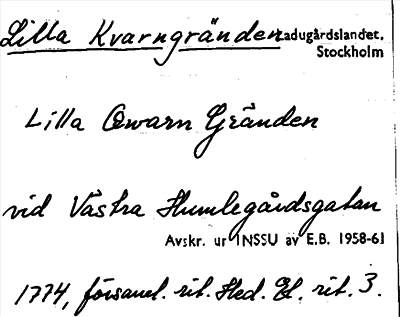 Lilla Kvarngränden Ladugårdslandet,
Stockholm
Lilla Qwarn Gränden
vid Västra Humlegårdsgatan
Avskr. ur INSSU av E.B. 1958-61
1774, församl. rit. Hed. El. rit. 3.